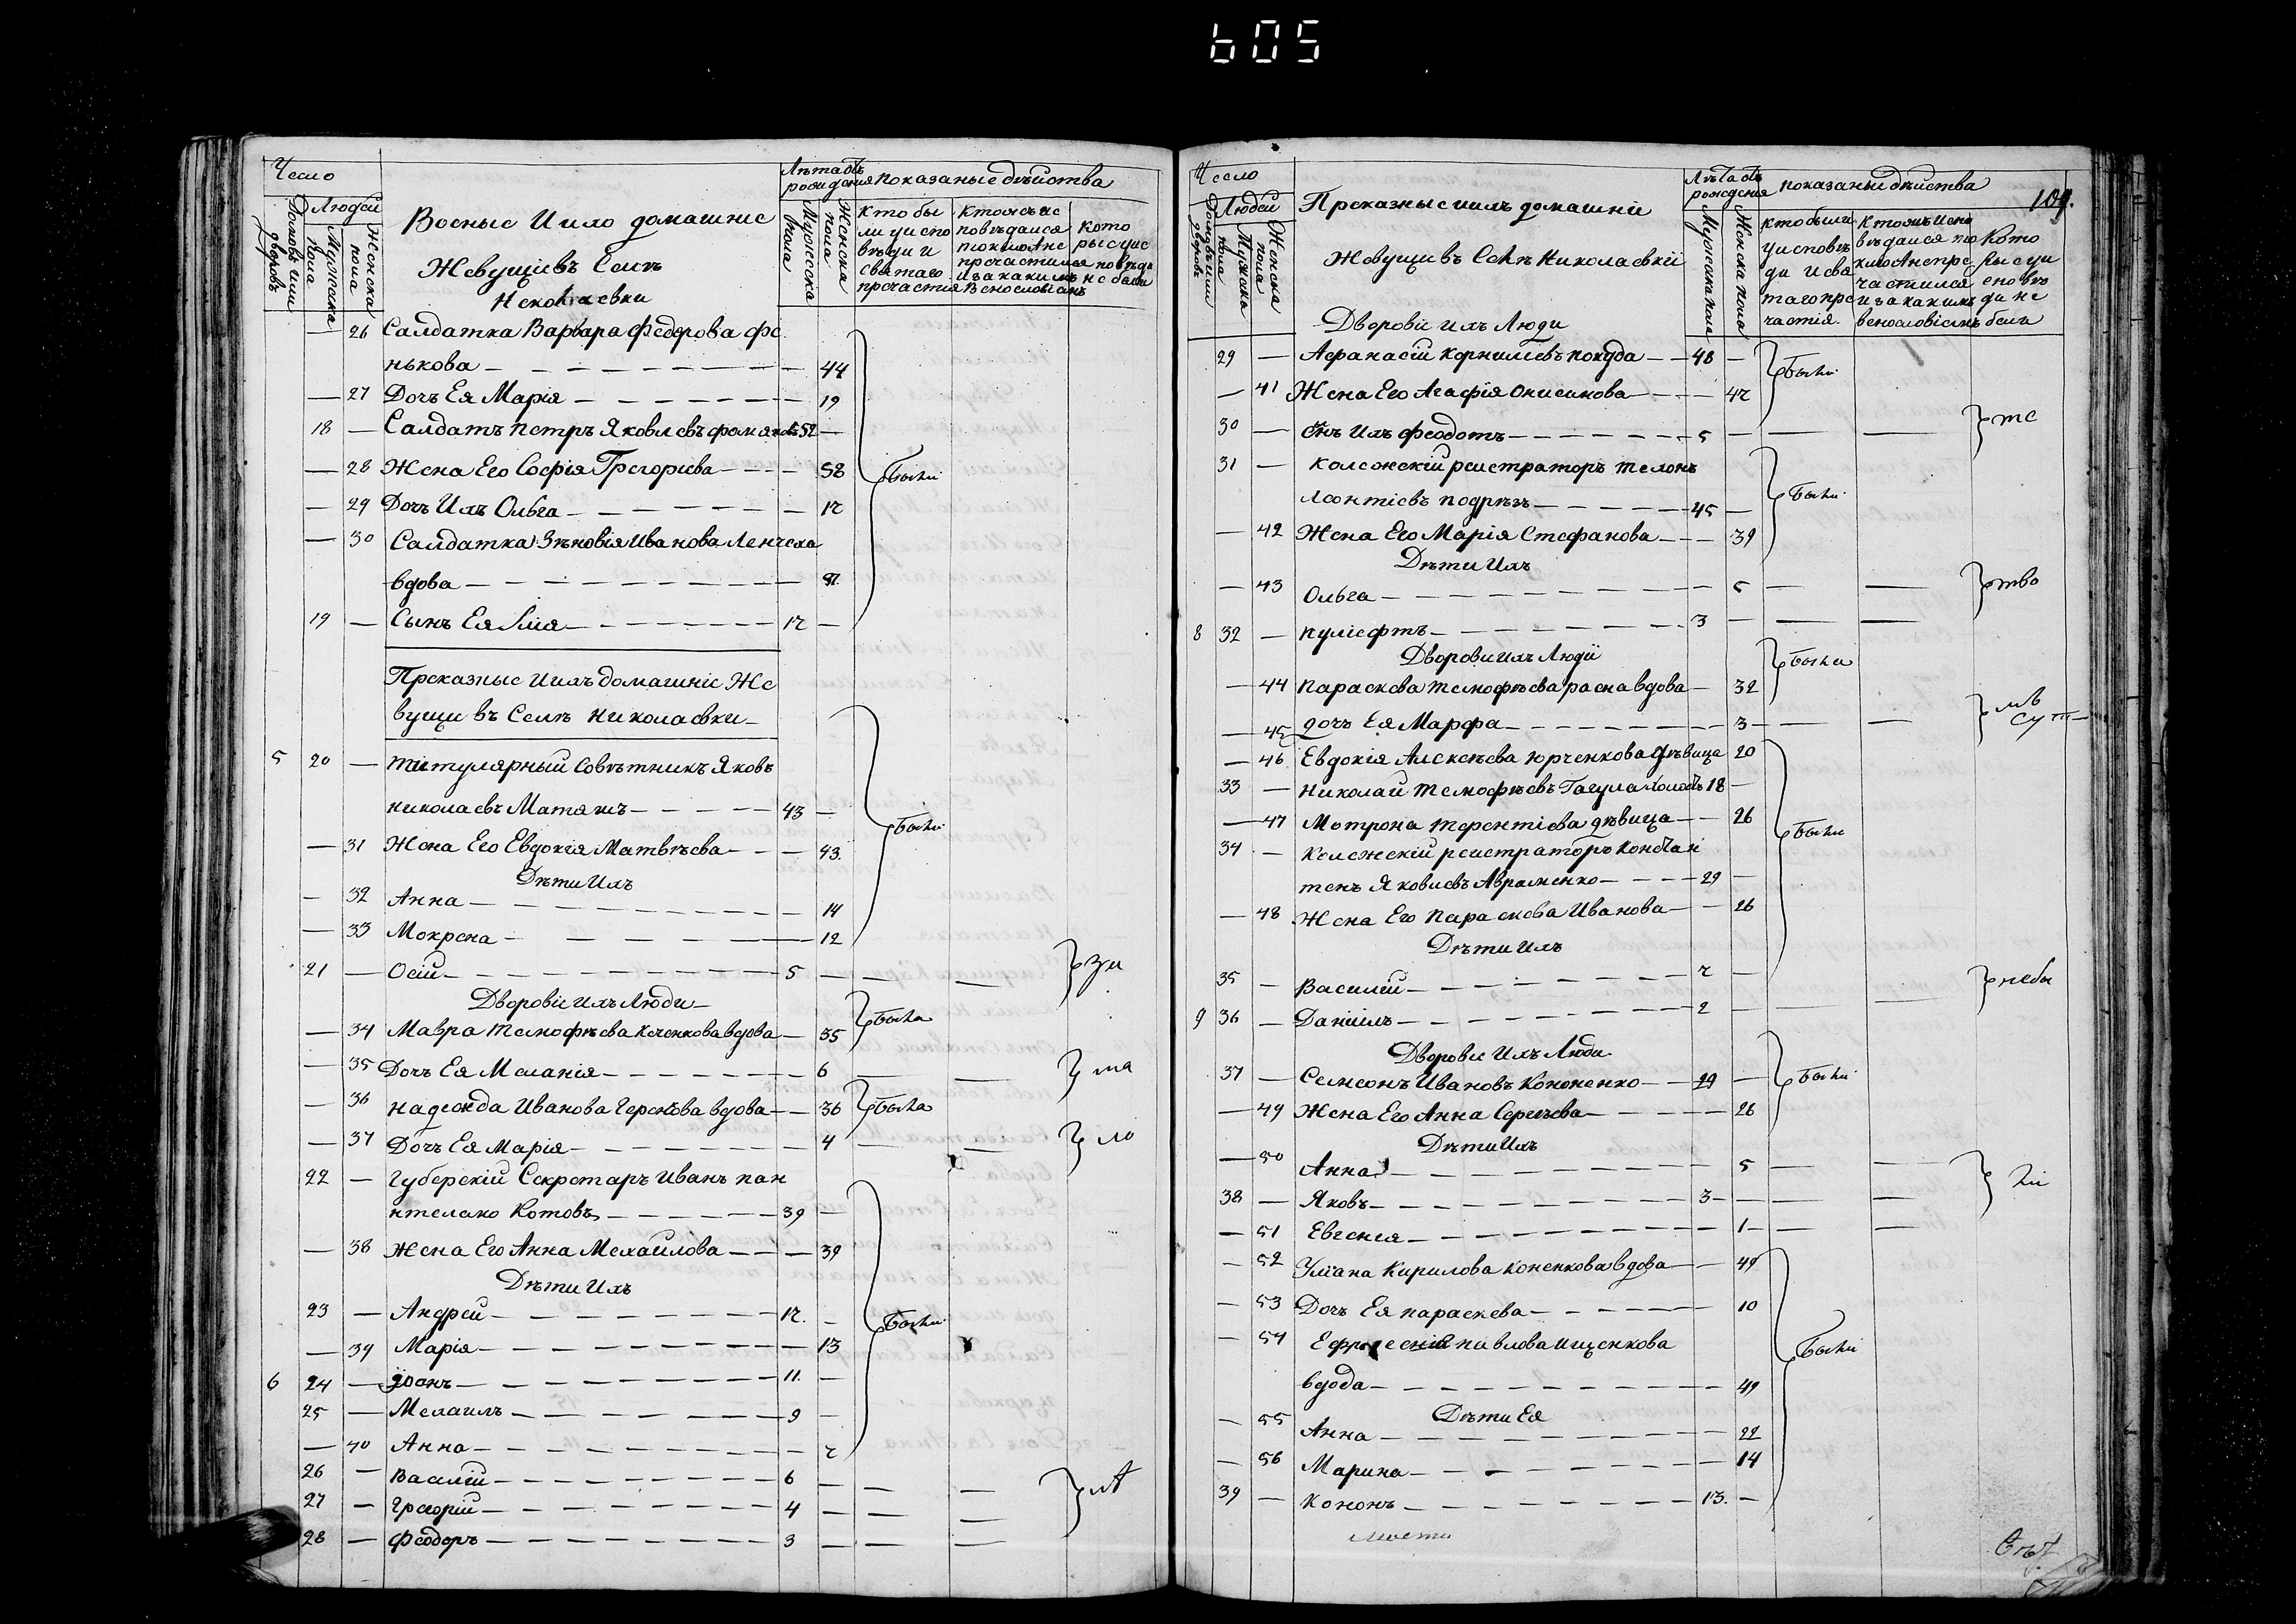 605
Число
Людей
Домовъ или дворовъ
Мужеска пола
Женска пола
Военые Иихъ домашние
Живущiевъ Селѣ
Николаевки
Лѣта отъ рождения
Мужеска пола
Женска пола
показаные дѣйства
Кто бы
ли у испо
вѣди и
святаго
причастия
Кто ясъ ис
повѣдался
токмо Ане
причастился
Иза какимъ
Винословiемъ
Кото
рые уис
повѣди
не были
— 26 Салдатка Варвара Федорова Фе
нькова — 44
— 27 Дочъ Ея Марiя — 19
18 — Салдатъ петръ Яковлевъ фомяковъ 52 —
— 28 Жена Его Софiя Григорiева — 58
— 29 Дочъ Ихъ Ольга — 17
были
— 30 Салдатка Зѣновiя Иванова Ленчеха
вдова — 37
19 — Сынъ Ея Iлiя — 17 —
Приказные Иихъ домашнiе Жи
вущи въ Селѣ Николаевки —
5 20 — титулярный Совѣтникъ Яковъ
николаевъ Матяшъ — 43 —
были
— 31 Жена Его Евдокiя Матвѣева — 43.
Дѣти Ихъ
— 32 Анна — 14
— 33 Мокрена — 12
21 — Осiй — 5 — — — зи
Дворовiе ихъ Люди —
— 34 Мавра тимофѣева Каленкова вдова — 35 была
— 35 Дочъ Ея Меланiя — 6 — — мя
— 36 надежда Иванова Геренкова вдова — 36 была
— 37 Дочъ Ея Марiя — 4 — — ло
22 — Губерскiй Секретаръ Иванъ пан
нтелако Котовъ — 39 —
— 38 Жена Его Анна Михайлова — 39
Дѣти Ихъ
23 — Андрей — 17. —
были
— 39 Марiя — 13
6 24 — Iоанъ — 11. —
25 — Михаилъ — 9 —
— 40 Анна — 7
26 — Василiй — 6 — — —
27 — Григорiй — 4 — — — лѣт
28 — Феодоръ — 3 — — —
Число
Людей
Домовъ или дворовъ
Мужескъ пола
Женска пола
Приказные иихъ домашнiи
Живущи въ Селѣ Николаевкѣ
Лѣта отъ рождения
Мужска пола
Женска пола
показаныи дѣиства
109.
кто были
уисповѣ
ди и свя
таго при
частiя.
Кто яшъ испо
вѣдался то
кмо Анепри
частился
иза какимъ
винословiемъ
Кото
рыи уи
сповѣ
ди не
были
Дворовiе ихъ Люди
29 — Афанасiй корнилiевъ покуда — 48 —
были
— 41 Жена Его Агафiя Онисимова — 47
30 — Сынъ Ихъ феодотъ — 5 — — — те
31 — колежскiй реистраторъ тилонъ
Леонтiевъ подрѣзъ — 45 —
были
— 42 Жена Его Марiя Стефанова — 39
Дѣти Ихъ
— 43 Ольга — 5 — — тво
8 32 — пулiефтъ — 3 — — —
Дворови ихъ Люди
была
— 44 параскева тимофѣева расна вдова — 32
— 45 дочъ Ея Марфа — 3 — —
— 46 Евдокiя Алексѣева юрченкова дѣвица 20
33 — николай тимофѣевъ Гагула холостъ 18 —
— 47 Мотрона терентiева дѣвица — 26
были
34 — колежскiй реистраторъ констан
тенъ Яковлевъ Авраменко — 29 —
— 48 Жена Его параскева Иванова — 26
Дѣти ихъ
35 — Василiй — 7 —
небы
9 36 — Данiилъ — 2 — — —
Дворовiе Ихъ Люди
37 — Семсонъ Ивановъ Кононенко — 29 — были
— 49 Жена Его Анна Сергѣева — 26
Дѣти Ихъ
— 50 Анна — 5 — —
38 — Яковъ — 3 — — — ли
— 51 Евгения — 1 — —
— 52 Улiана Кирилова коненкова вдова — 49
— 53 Дочъ Ея параскева — 10
— 54 Ефросенiя павлова ищенкова
были
вдова — 49
Дѣти Ея
— 55 Анна — 22
— 56 Марина — 14
39 — кононъ — 13. —